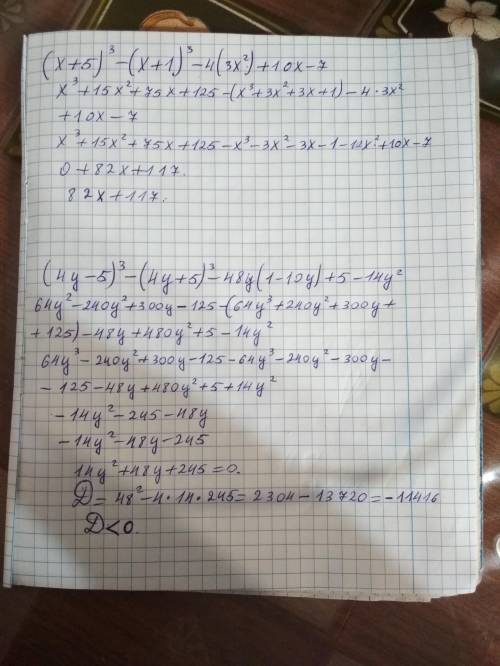 (x+5)³-(x+1)³-4(3x²)+10x-7
x³+15x²+75x+125-(x³+3x²+3x+1)-4·3x²
+10x-7
x³+15x²+75x+125-x³-3x²-3x-1-12x²+10x-7
0+82x+117.
82x+117.
(4y-5)³-(4y+5)³-48y(1-10y)+5-14y²
64y²-240y²+300y-125-(64y³+240y²+300y+
+125)-48y+480y²+5-14y²
64y³-240y²+300y-125-64y³-240y²-300y-
-125-48y+480y²+5+14y²
-14y²-245-48y
-14y²-48y-245
14y²+48y+245=0.
D=48²-4·14·245=2304-13720=-11416
D<0.